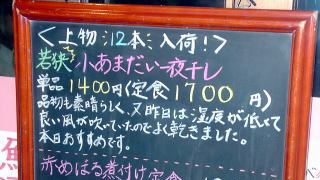 ＜上物 12本 入荷！＞
若狭で 小あまだい一夜干し
単品1400円(定食1700円)
品物も素晴らしく、又昨日は湿度が低くて
良い風が吹いていたのでよく乾きました。
本日おすすめです。
赤めばる煮付け定食